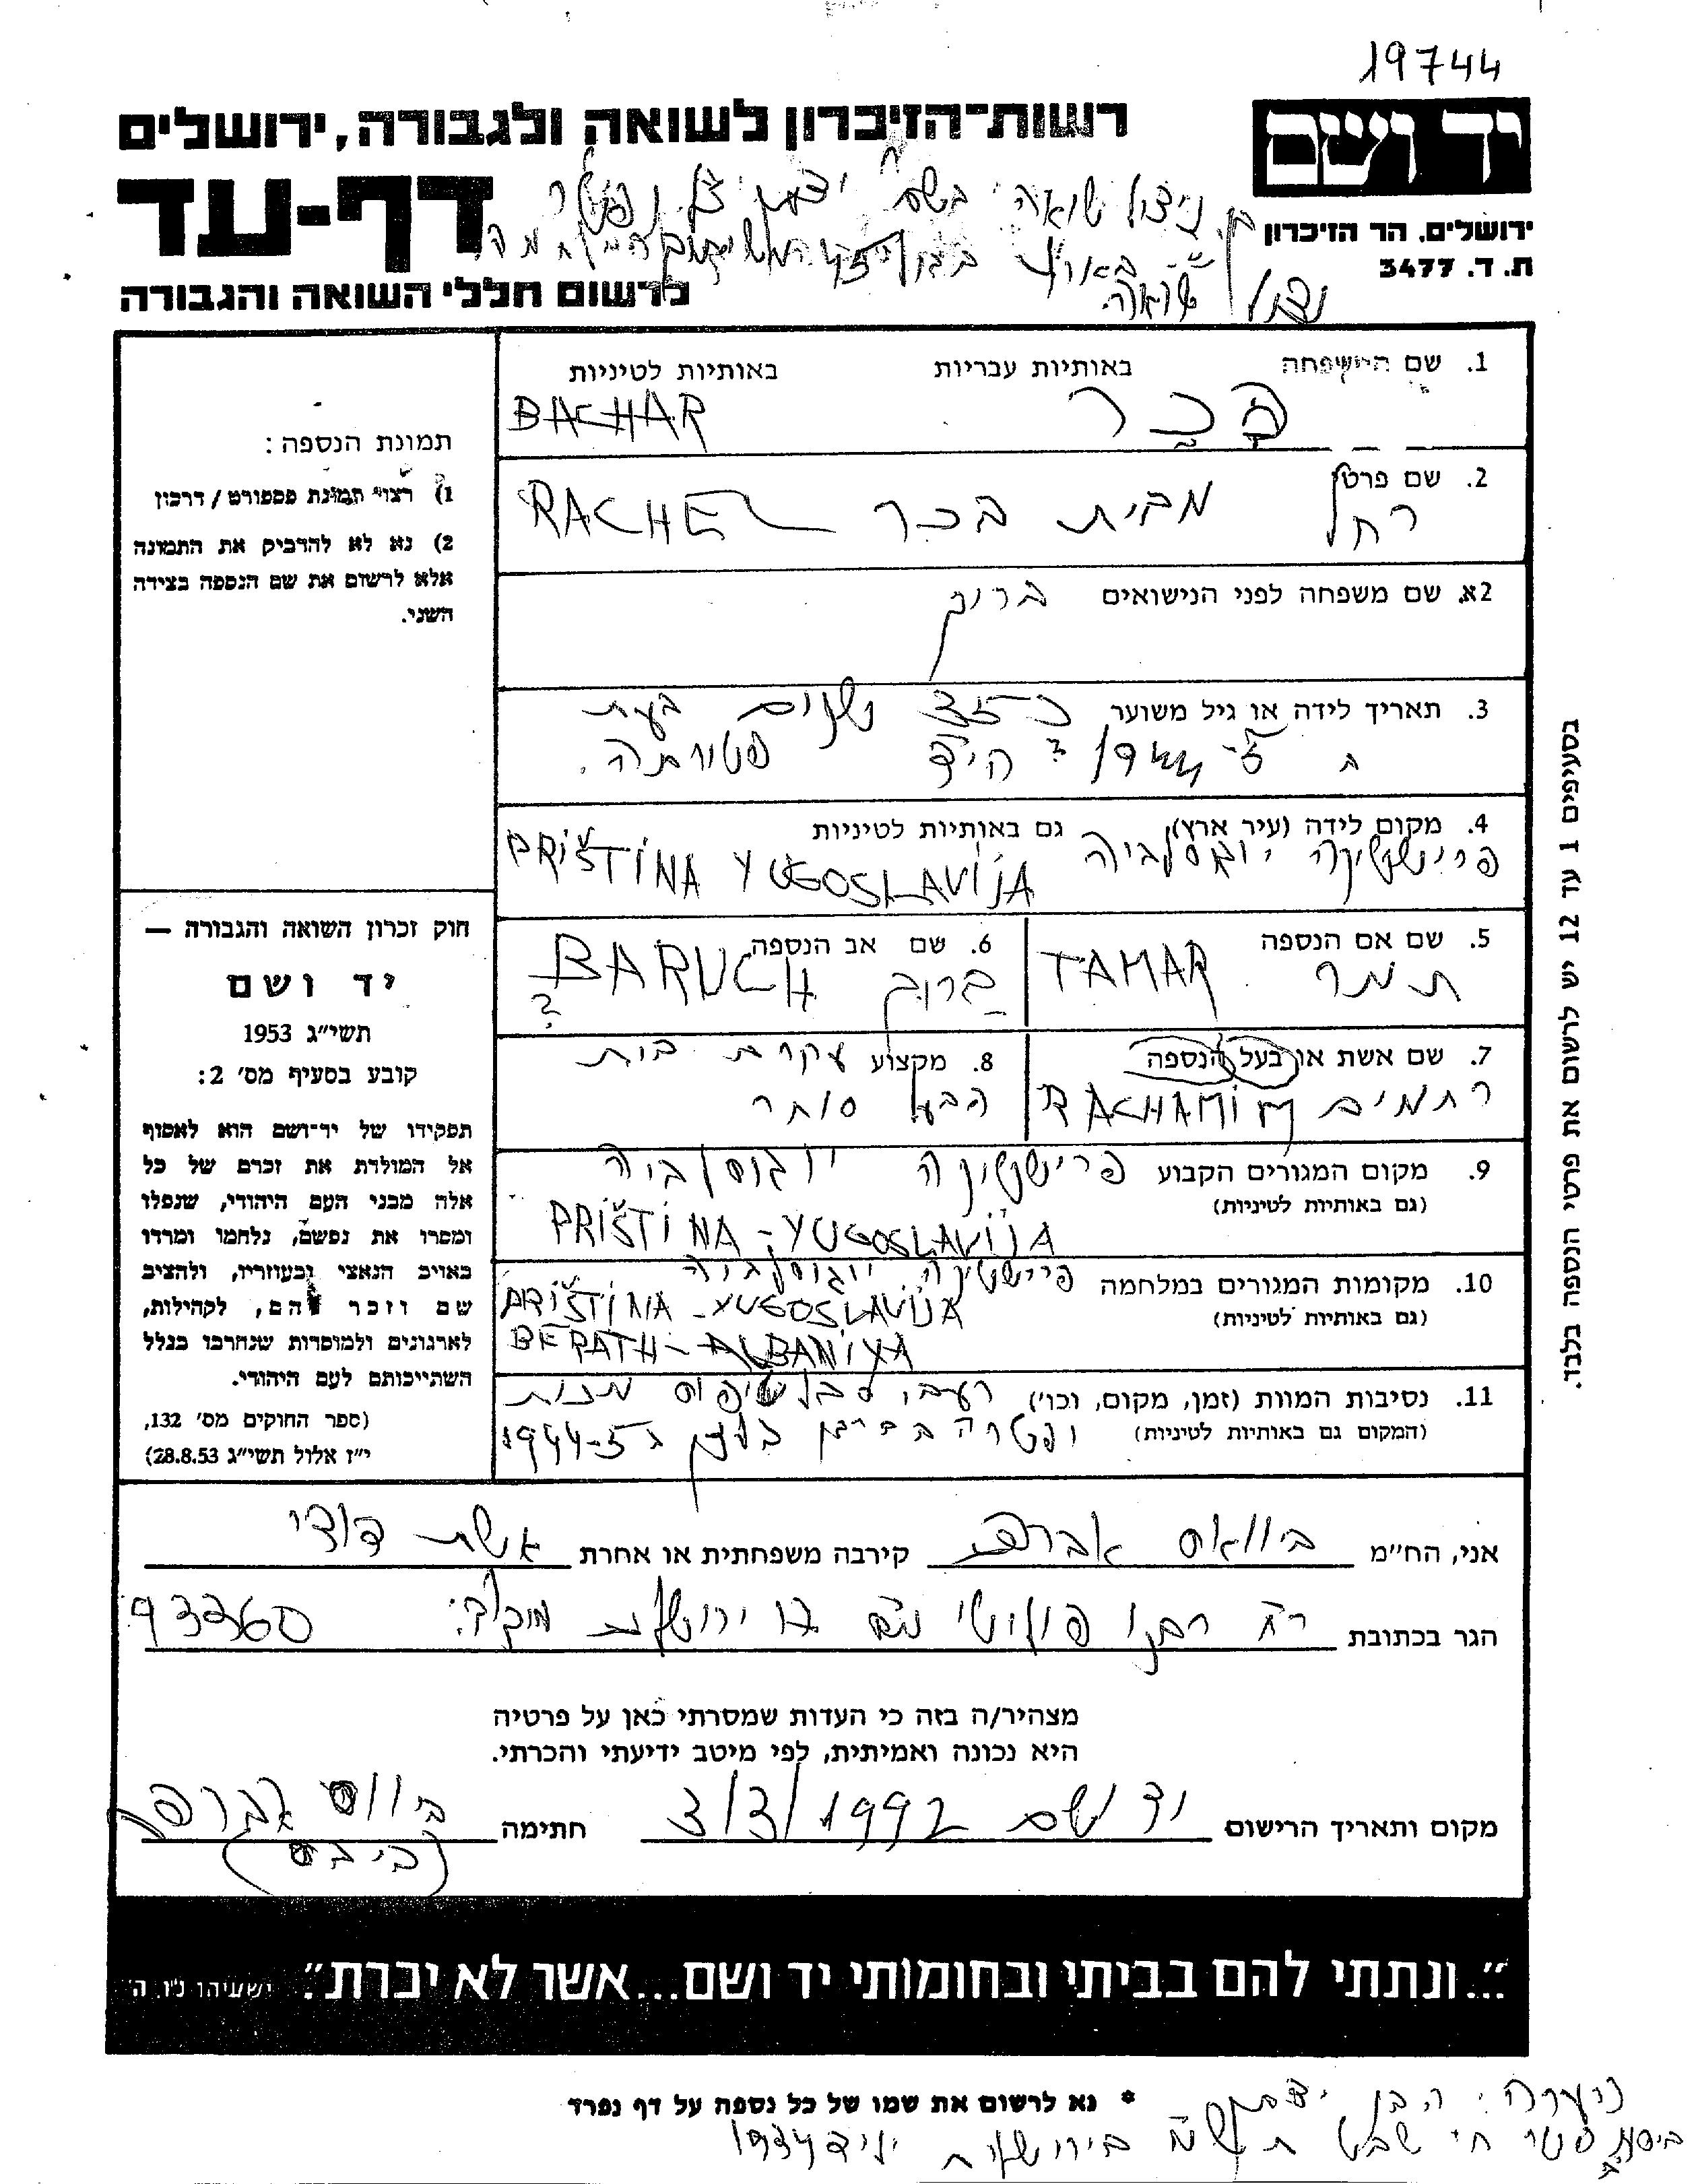 19744
יד ושם
רשות־הזיכרון לשואה ולגבורה, ירושלים
דף-עד
לרשום חללי השואה והגבורה
ירושלים, הר הזיכרון
ת. ד. 3477
בן ניצול שואה בשם
ניצול שואה.
1. שם המשפחה באותיות עבריות באותיות לטיניות
בכר BACHAR
2. שם פרטי
רחל מבית בכר RACHEL
2א. שם משפחה לפני הנישואים ברוך
3. תאריך לידה או גיל משוער כ-35 שנים בעת
פטירתה.
4. מקום לידה (עיר ארץ) גם באותיות לטיניות
פרישטינה יוגוסלביה PRIŠTINA YUGOSLAVIJA
5. שם אם הנספה
תמר TAMAR
6. שם אב הנספה
ברוך BARUCH ?
7. שם אשת או בעל הנספה
רחמים RACHAMIM
8. מקצוע עקרת בית
הבעל סוחר
9. מקום המגורים הקבוע פרישטינה יוגוסלביה
(גם באותיות לטיניות)
PRIŠTINA - YUGOSLAVIJA
10. מקומות המגורים במלחמה פרישטינה יוגוסלביה
(גם באותיות לטיניות) PRIŠTINA - YUGOSLAVIJA
BERATH - ALBANIYA
11. נסיבות המוות (זמן, מקום, וכו') רעב, סבל, טיפוס
(המקום גם באותיות לטיניות) ופטרה בברגן בלזן ב 1944-5
תמונת הנספה:
1) רצוי תמונת פספורט / דרכון
2) נא לא להדביק את התמונה
אלא לרשום את שם הנספה בצידה
השני.
חוק זכרון השואה והגבורה —
יד ושם
תשי״ג 1953
קובע בסעיף מס' 2:
תפקידו של יד־ושם הוא לאסוף
אל המולדת את זכרם של כל
אלה מבני העם היהודי, שנפלו
ומסרו את נפשם, נלחמו ומרדו
באויב הנאצי ובעוזריו, ולהציב
שם וזכר להם, לקהילות,
לארגונים ולמוסדות שנחרבו בגלל
השתייכותם לעם היהודי.
(ספר החוקים מס' 132,
י״ז אלול תשי״ג 28.8.53)
בסעיפים 1 עד 12 יש לרשום את פרטי הנספה בלבד.
אני, הח״מ ביוואס אברהם קירבה משפחתית או אחרת אשת דודי
הגר בכתובת ירושלים 93360
מצהיר/ה בזה כי העדות שמסרתי כאן על פרטיה
היא נכונה ואמיתית, לפי מיטב ידיעתי והכרתי.
מקום ותאריך הרישום יד ושם 3/3/1992 חתימה ביווס אברהם
(ביבס)
״...ונתתי להם בביתי ובחומותי יד ושם...אשר לא יכרת״. ישעיהו נו, ה'
* נא לרשום את שמו של כל נספה על דף נפרד
הערה: הבן